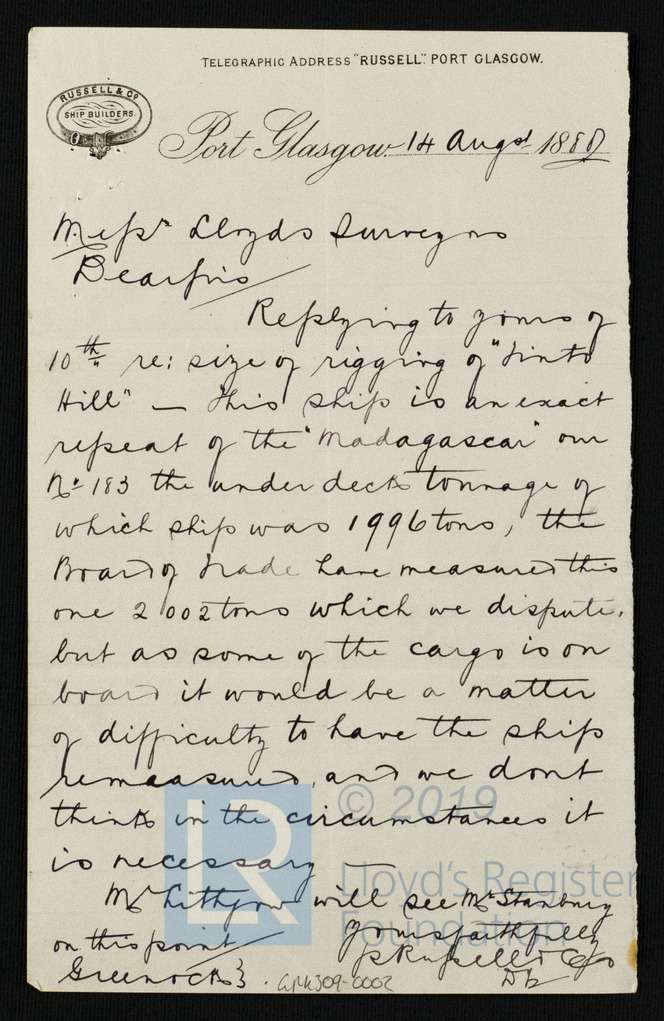 TELEGRAPHIC ADDRESS "RUSSELL": PORT GLASGOW.
RUSSELL & Co
SHIP BUILDERS.
Port Glasgow 14 Augst 1880
Messrs Lloyds Surveyors
Dear Sirs
Replying to yours of
10th re: size of rigging of "Tinto
Hill" — This ship is an exact
repeat of the "Madagascar" our
No 183 the under deck tonnage of
which ship was 1996 tons, the
Board of Trade have measured this
one 2002 tons which we dispute,
but as some of the cargo is on
board it would be a matter
of difficulty to have the ship
remeasured, and we dont
think in the circumstances it
is necessary —
Mr Lithgow will see Mr Stanbury
on this point
yours faithfully
Russell & Co
Greenock}
GRK309-0002
LR
© 2019
Lloyd's Register
Foundation